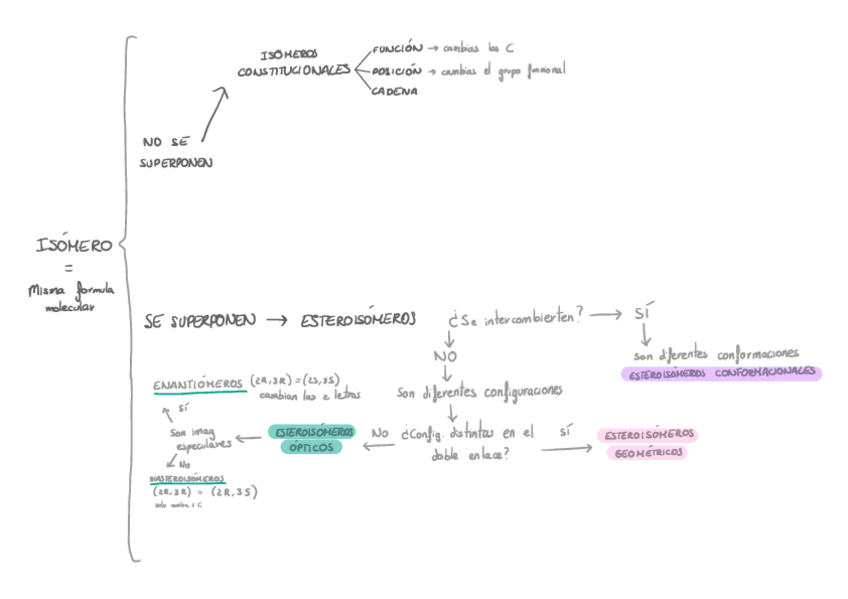 ISÓMERO
=
Misma formula
molecular
NO SE
SUPERPONEN
ISÓMEROS
CONSTITUCIONALES
FUNCIÓN → cambias los C
POSICIÓN → cambias el grupo funcional
CADENA
SE SUPERPONEN → ESTEROISÓMEROS
¿Se intercambierten? → SÍ
son diferentes conformaciones
ESTEROISÓMEROS CONFORMACIONALES
NO
Son diferentes configuraciones
¿Config. distintas en el
doble enlace?
SÍ
ESTEROISÓMEROS
GEOMÉTRICOS
No
ESTEROISÓMEROS
ÓPTICOS
Son imag
especulares
SÍ
ENANTIÓMEROS (2R,3R) = (2S,3S)
cambian las 2 letras
No
DIASTEROISÓMEROS
(2R,3R) = (2R,3S)
solo cambia 1 C